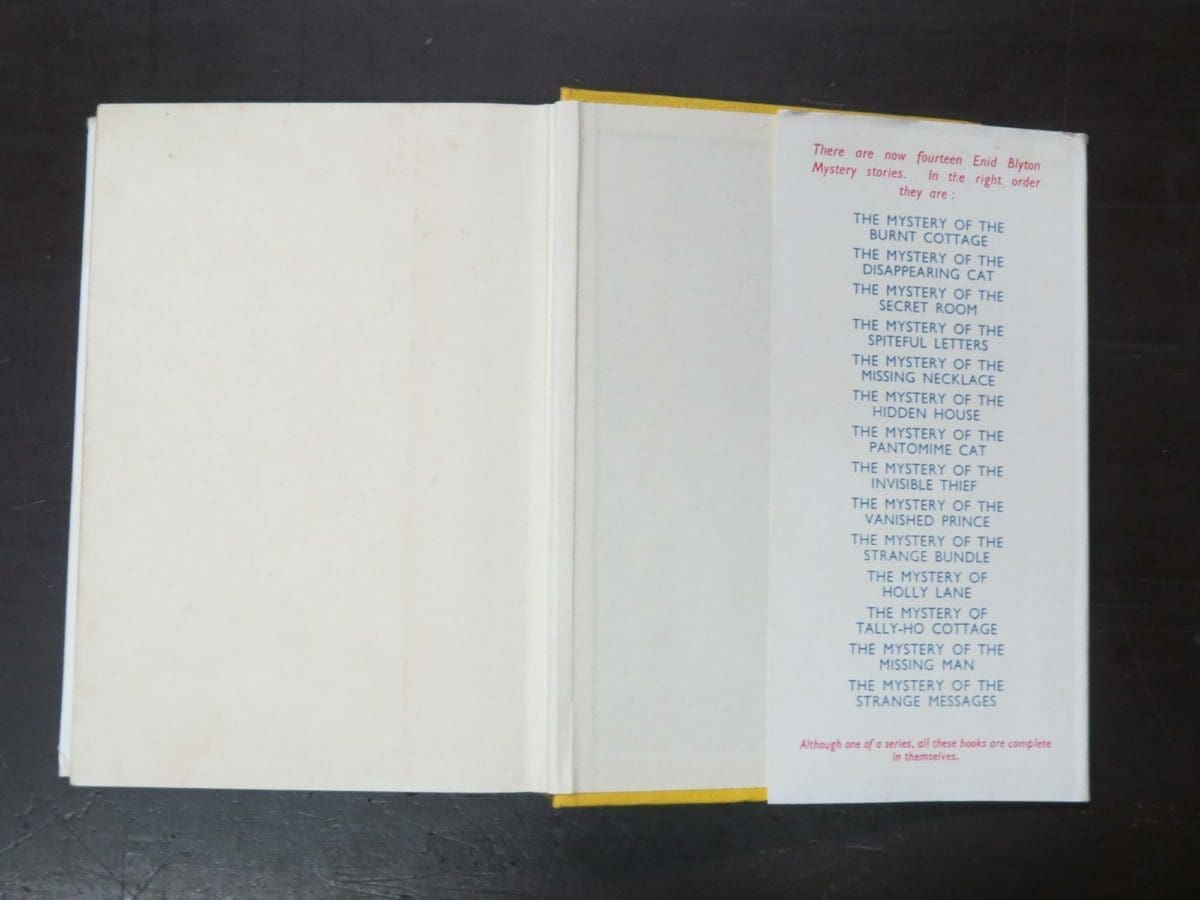 There are now fourteen Enid Blyton
Mystery stories. In the right order
they are :
THE MYSTERY OF THE
BURNT COTTAGE
THE MYSTERY OF THE
DISAPPEARING CAT
THE MYSTERY OF THE
SECRET ROOM
THE MYSTERY OF THE
SPITEFUL LETTERS
THE MYSTERY OF THE
MISSING NECKLACE
THE MYSTERY OF THE
HIDDEN HOUSE
THE MYSTERY OF THE
PANTOMIME CAT
THE MYSTERY OF THE
INVISIBLE THIEF
THE MYSTERY OF THE
VANISHED PRINCE
THE MYSTERY OF THE
STRANGE BUNDLE
THE MYSTERY OF
HOLLY LANE
THE MYSTERY OF
TALLY-HO COTTAGE
THE MYSTERY OF THE
MISSING MAN
THE MYSTERY OF THE
STRANGE MESSAGES
Although one of a series, all these books are complete
in themselves.